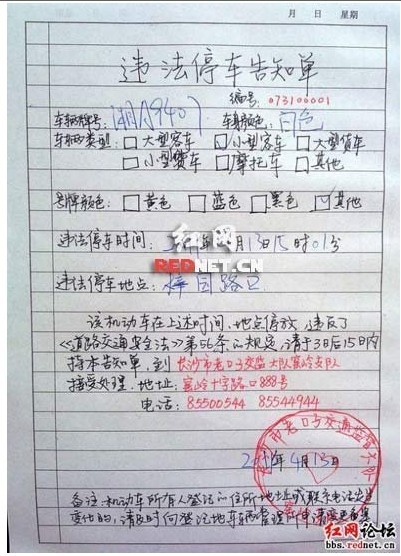 月 日 星期
违法停车告知单
编号: 073100001
车辆牌号: 车身颜色: 白色
车辆类型: 大型客车 小型客车 大型货车
小型货车 摩托车 其他
号牌颜色: 黄色 蓝色 黑色 其他
违法停车时间: 月13日15时01分
违法停车地点: 梓园路口
该机动车在上述时间、地点停放,违反了
《道路交通安全法》第56条的规定,请于3日后15日内
持本告知单,到长沙市老口子交监大队蜜岭支队
接受处理。地址:蜜岭十字路口888号
电话: 85500544 85544944
4月13日
备注:机动车所有人登记的住所地址或联系电话发生
变化的,请及时向登记地车辆管理所申请变更备案
红网
REDNET.CN
红网论坛
bbs.rednet.cn